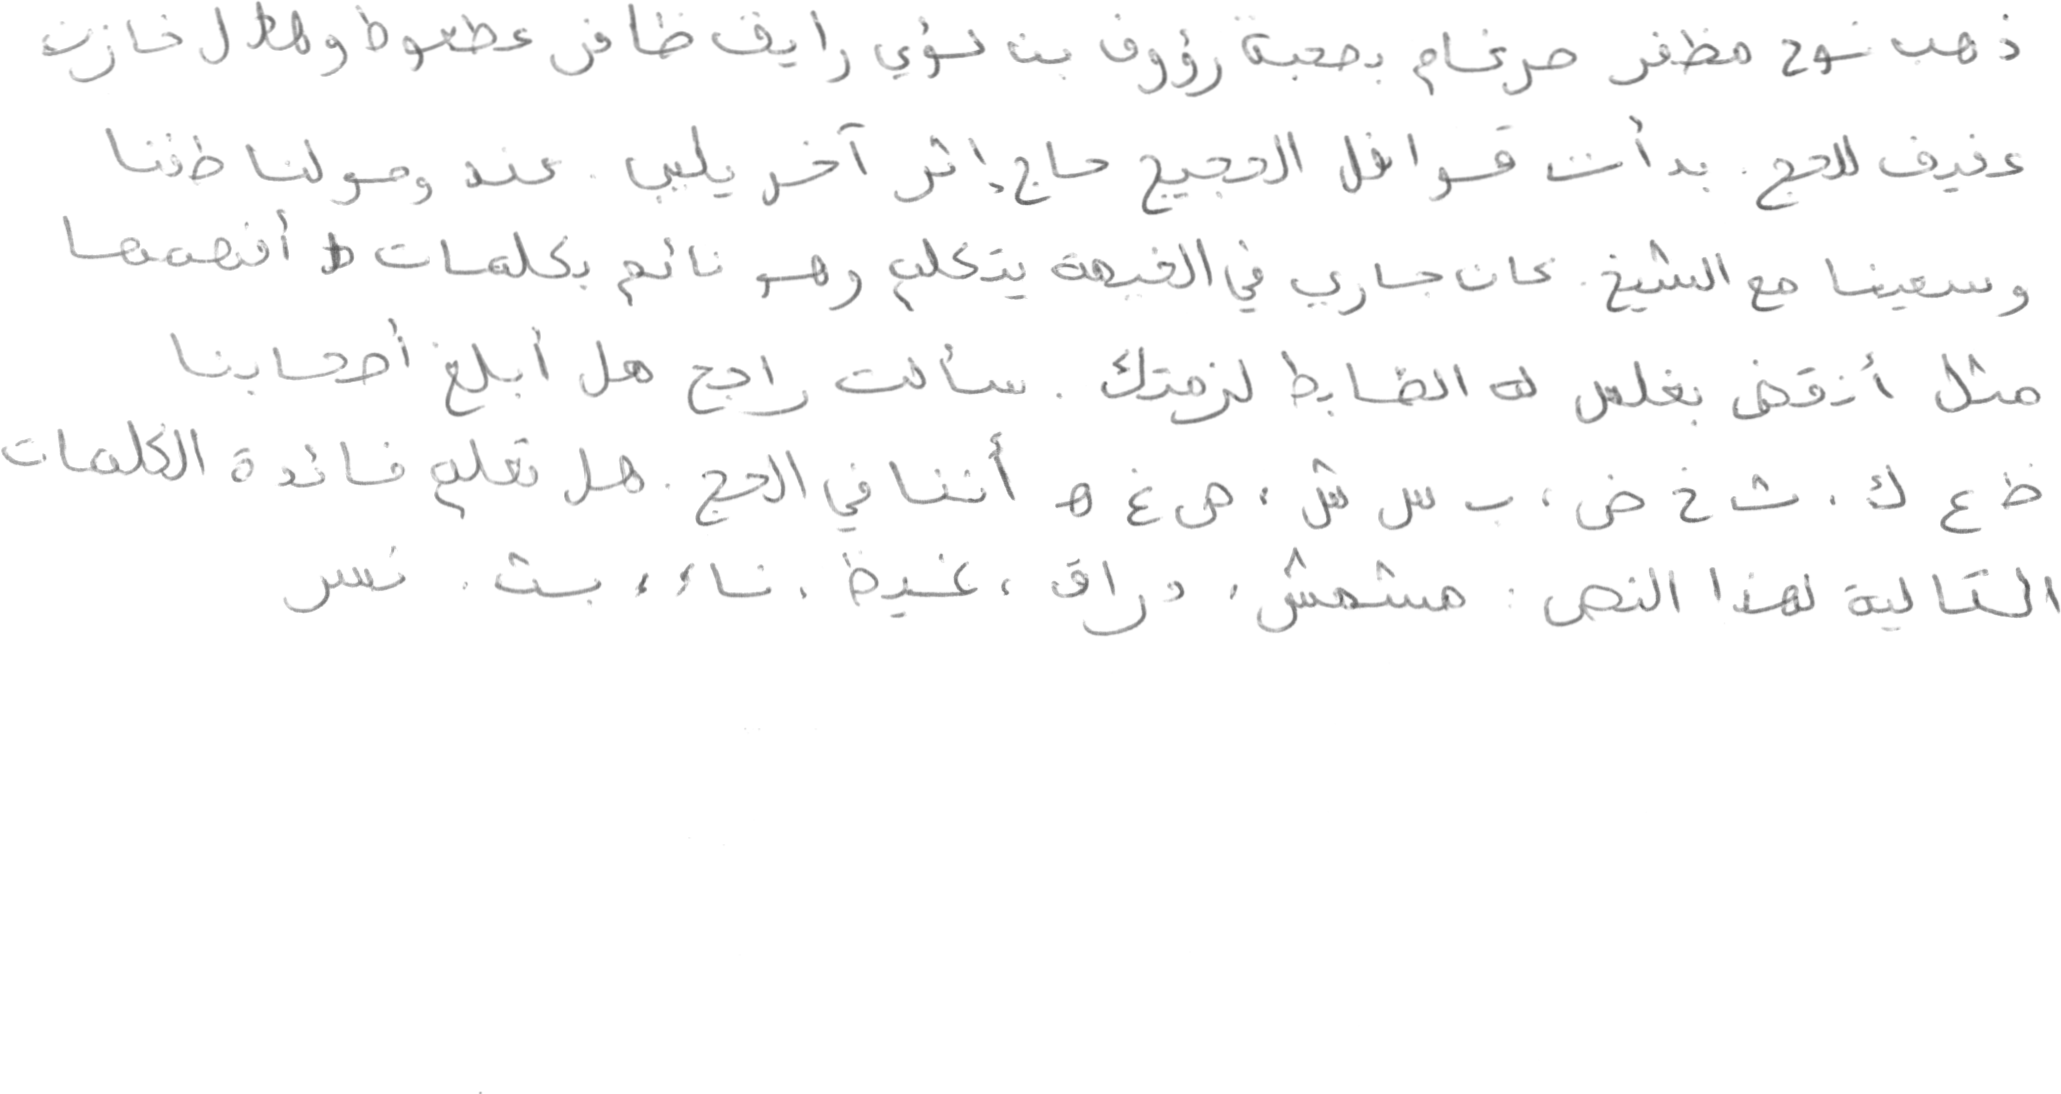 ذهب نوح مظفر ضرغام بصحبة رؤوف بن لؤي رايق ظافر عطعوط وهلال خازن
عفيف للحج. بدأت قوافل الحجيج حاج إثر آخر يلبي. عند وصولنا طفنا
وسعينا مع الشيخ. كان جاري في الخيمة يتكلم وهو نائم بكلمات لا أفهمها
مثل أنقض بغلس له الضابط لزمتك. سألت راجح هل أبلغ أصحابنا
ظ ع ك، ث خ ض، ب س ش، ص غ ه أننا في الحج. هل تعلم فائدة الكلمات
التالية لهذا النص: مشمش، دراق، غيظ، ناء، بث، نسر